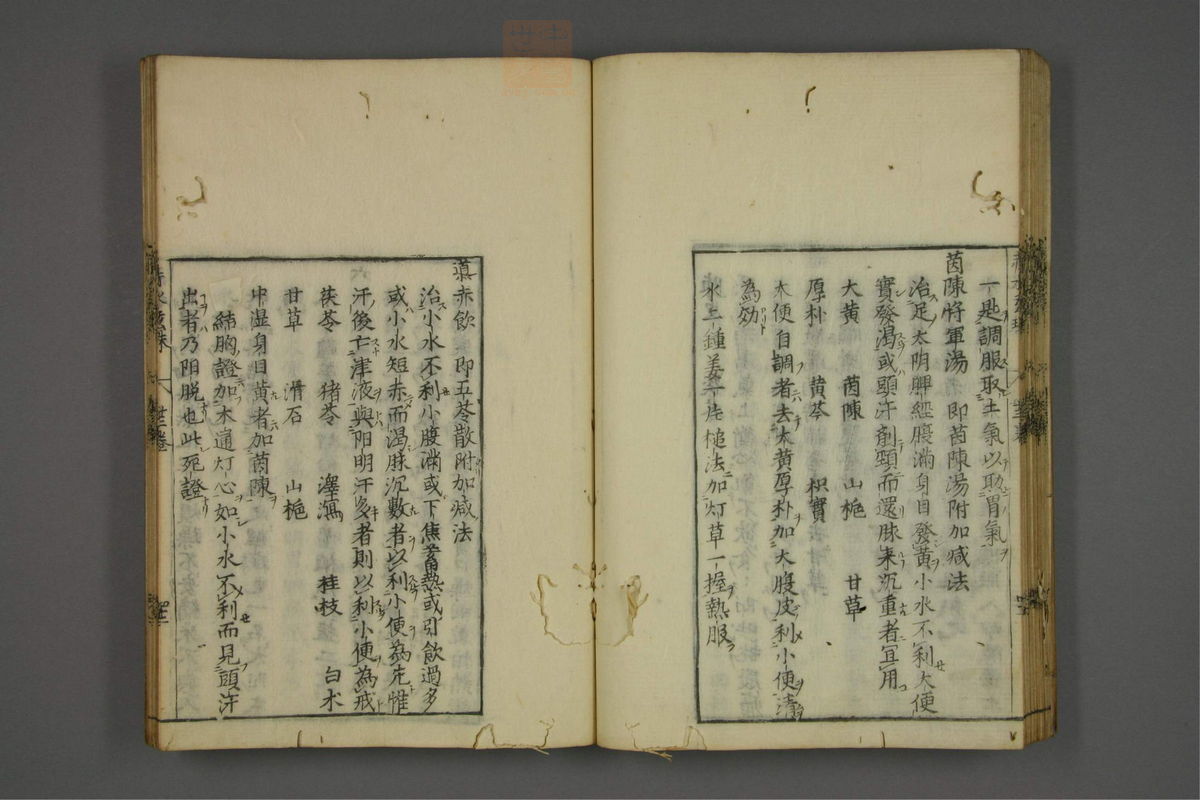 一匙調服取土氣以助胃氣
茵陳將軍湯 即茵陳湯附加减法
治足太阴脾經腹滿身目發黄小水不利大便
實發渴或頭汗劑頸而還脉来沉重者宜用
大黄 茵陳 山梔 甘草
厚朴 黄芩 枳實
大便自調者去大黄厚朴加大腹皮利小便清
為効
水二鍾姜一片槌法加灯草一握熱服
蕅赤飲 即五苓散附加减法
治小水不利小腹滿或下焦蓄熱或引飲過多
或小水短赤而渴脉沉數者以利小便為先惟
汗後亡津液與阳明汗多者則以利小便為戒
茯苓 猪苓 澤瀉 桂枝 白术
甘草 滑石 山梔
中湿身目黄者加茵陳
結胸證加木通灯心如小水不利而見頭汗
出者乃阳脱也此死證